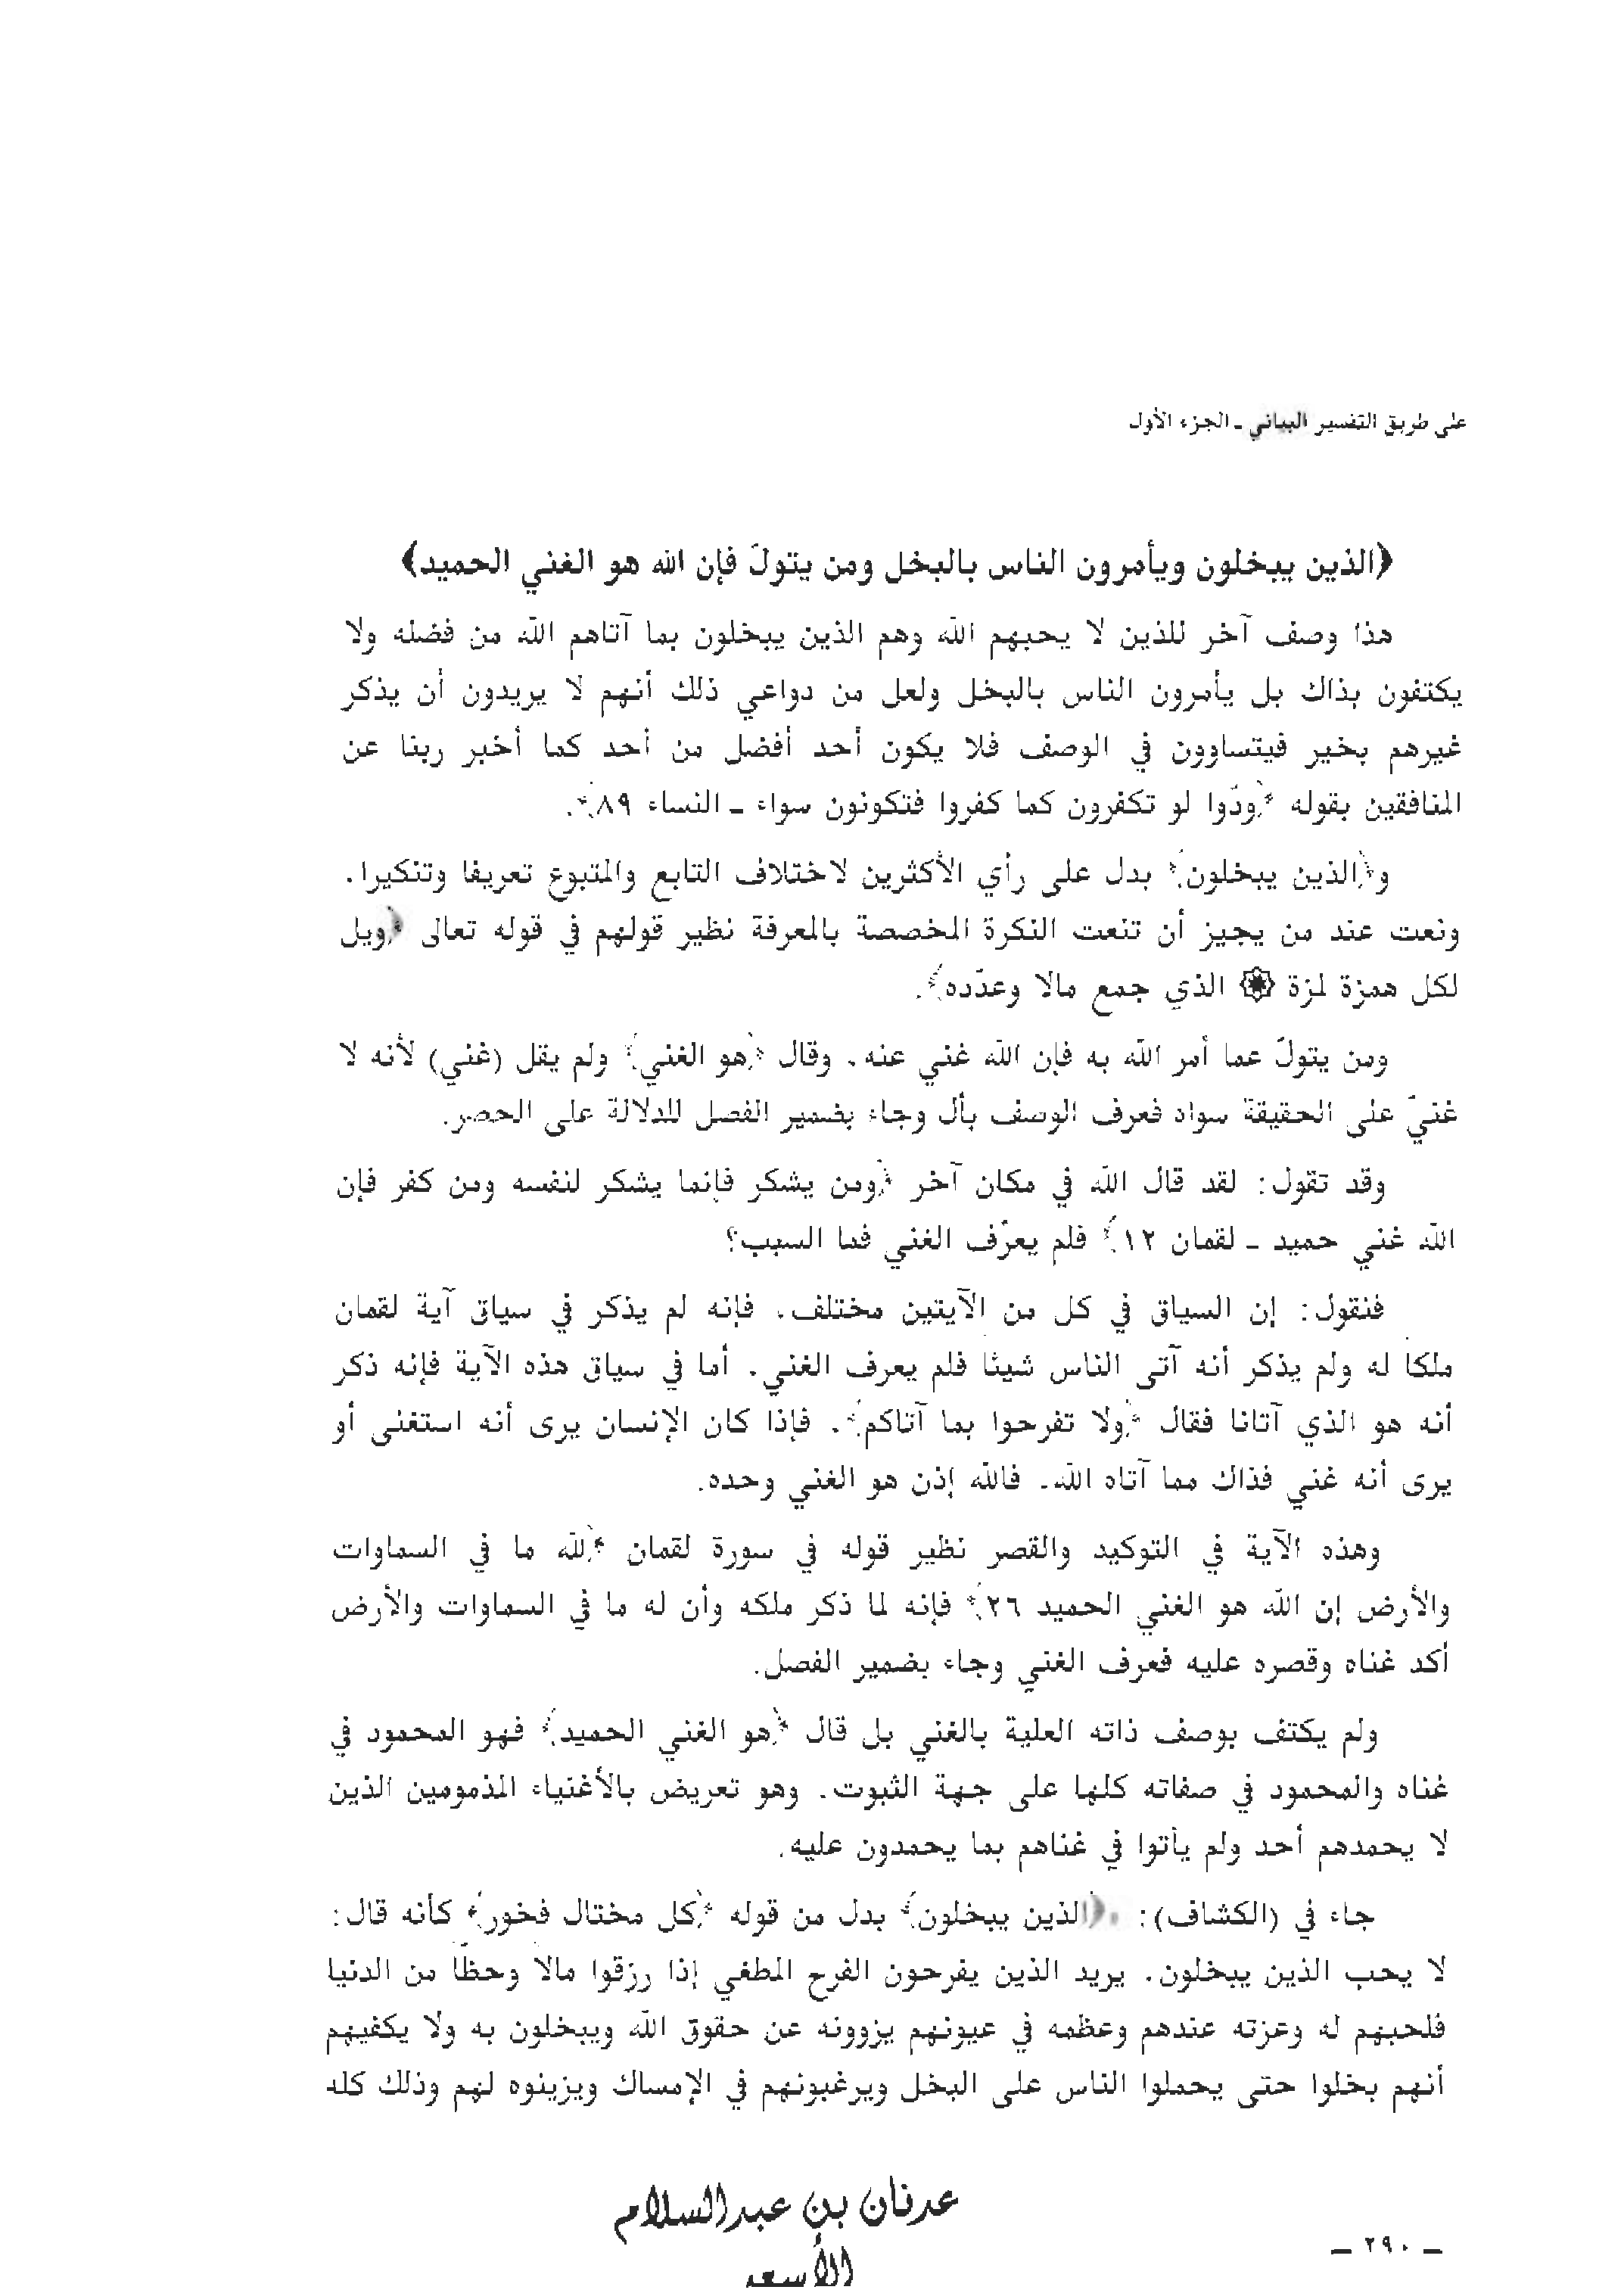 على طريق التفسير البياني ـ الجزء الأول
﴿الذين يبخلون ويأمرون الناس بالبخل ومن يتولّ فإن الله هو الغني الحميد﴾
هذا وصف آخر للذين لا يحبهم الله وهم الذين يبخلون بما آتاهم الله من فضله ولا
يكتفون بذاك بل يأمرون الناس بالبخل ولعل من دواعي ذلك أنهم لا يريدون أن يذكر
غيرهم بخير فيتساوون في الوصف فلا يكون أحد أفضل من أحد كما أخبر ربنا عن
المنافقين بقوله ﴿ودّوا لو تكفرون كما كفروا فتكونون سواء ـ النساء ٨٩﴾.
و﴿الذين يبخلون﴾ بدل على رأي الأكثرين لاختلاف التابع والمتبوع تعريفا وتنكيرا.
ونعت عند من يجيز أن تنعت النكرة المخصصة بالمعرفة نظير قولهم في قوله تعالى ﴿ويل
لكل همزة لمزة ۞ الذي جمع مالا وعدّده﴾.
ومن يتولّ عما أمر الله به فإن الله غني عنه. وقال ﴿هو الغني﴾ ولم يقل (غني) لأنه لا
غنيّ على الحقيقة سواه فعرف الوصف بأل وجاء بضمير الفصل للدلالة على الحصر.
وقد تقول: لقد قال الله في مكان آخر ﴿ومن يشكر فإنما يشكر لنفسه ومن كفر فإن
الله غني حميد ـ لقمان ١٢﴾ فلم يعرّف الغني فما السبب؟
فنقول: إن السياق في كل من الآيتين مختلف. فإنه لم يذكر في سياق آية لقمان
ملكاً له ولم يذكر أنه آتى الناس شيئا فلم يعرف الغني. أما في سياق هذه الآية فإنه ذكر
أنه هو الذي آتانا فقال ﴿ولا تفرحوا بما آتاكم﴾. فإذا كان الإنسان يرى أنه استغنى أو
يرى أنه غني فذاك مما آتاه الله. فالله إذن هو الغني وحده.
وهذه الآية في التوكيد والقصر نظير قوله في سورة لقمان ﴿لله ما في السماوات
والأرض إن الله هو الغني الحميد ٢٦﴾ فإنه لما ذكر ملكه وأن له ما في السماوات والأرض
أكد غناه وقصره عليه فعرف الغني وجاء بضمير الفصل.
ولم يكتف بوصف ذاته العلية بالغني بل قال ﴿هو الغني الحميد﴾ فهو المحمود في
غناه والمحمود في صفاته كلها على جهة الثبوت. وهو تعريض بالأغنياء المذمومين الذين
لا يحمدهم أحد ولم يأتوا في غناهم بما يحمدون عليه.
جاء في (الكشاف): ﴿الذين يبخلون﴾ بدل من قوله ﴿كل مختال فخور﴾ كأنه قال:
لا يحب الذين يبخلون. يريد الذين يفرحون الفرح المطغي إذا رزقوا مالاً وحظّاً من الدنيا
فلحبهم له وعزته عندهم وعظمه في عيونهم يزوونه عن حقوق الله ويبخلون به ولا يكفيهم
أنهم بخلوا حتى يحملوا الناس على البخل ويرغبونهم في الإمساك ويزينوه لهم وذلك كله
عدنان بن عبدالسلام
الأسعد
ـ ٢٩٠ ـ